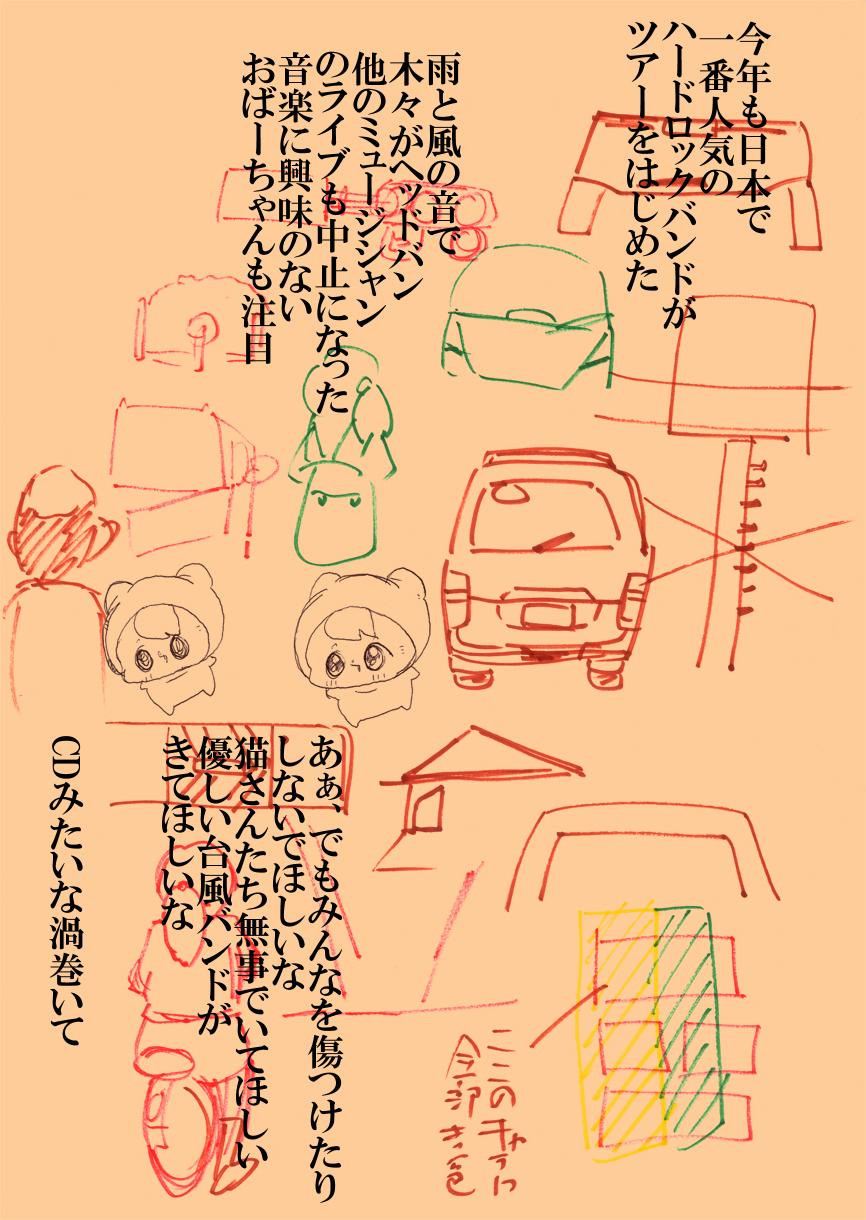 今年も日本で
一番人気の
ハードロックバンドが
ツアーをはじめた
雨と風の音で
木々がヘッドバン
他のミュージシャン
のライブも中止になった
音楽に興味のない
おばーちゃんも注目
あぁ、でもみんなを傷つけたり
しないでほしいな
猫さんたち無事でいてほしい
優しい台風バンドが
きてほしいな
CDみたいな渦巻いて
ここの
全部